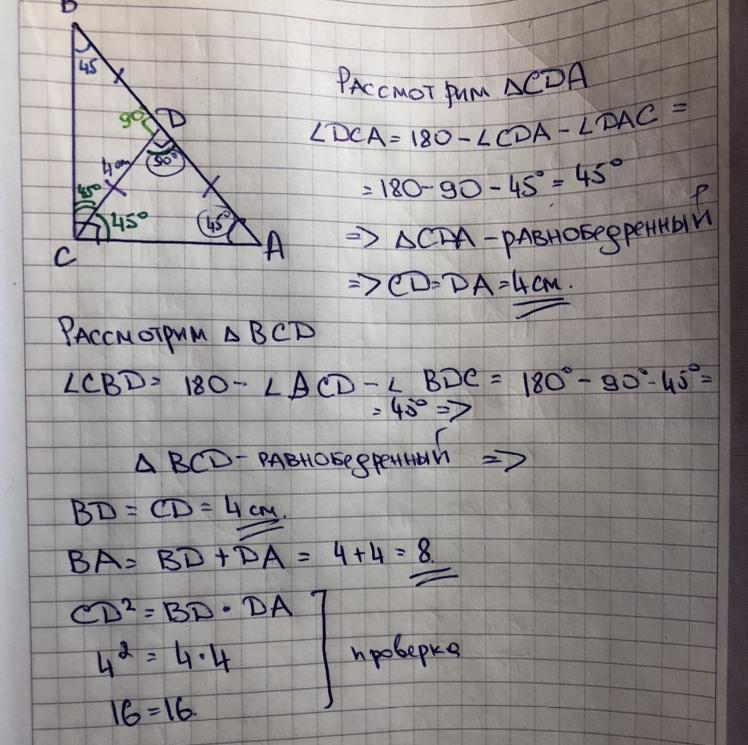 B
45
90
D
4см
90°
45°
45°
45°
C
A
Рассмотрим △CDA
∠DCA = 180 - ∠CDA - ∠DAC =
= 180 - 90 - 45° = 45°
=> △CDA - равнобедренный р
=> CD = DA = 4 см.
Рассмотрим △ BCD
∠CBD = 180 - ∠BCD - ∠ BDC = 180° - 90° - 45° =
= 45° =>
△ BCD - равнобедренный =>
BD = CD = 4 см.
BA = BD + DA = 4 + 4 = 8
CD² = BD · DA
4² = 4 · 4
16 = 16.
проверка